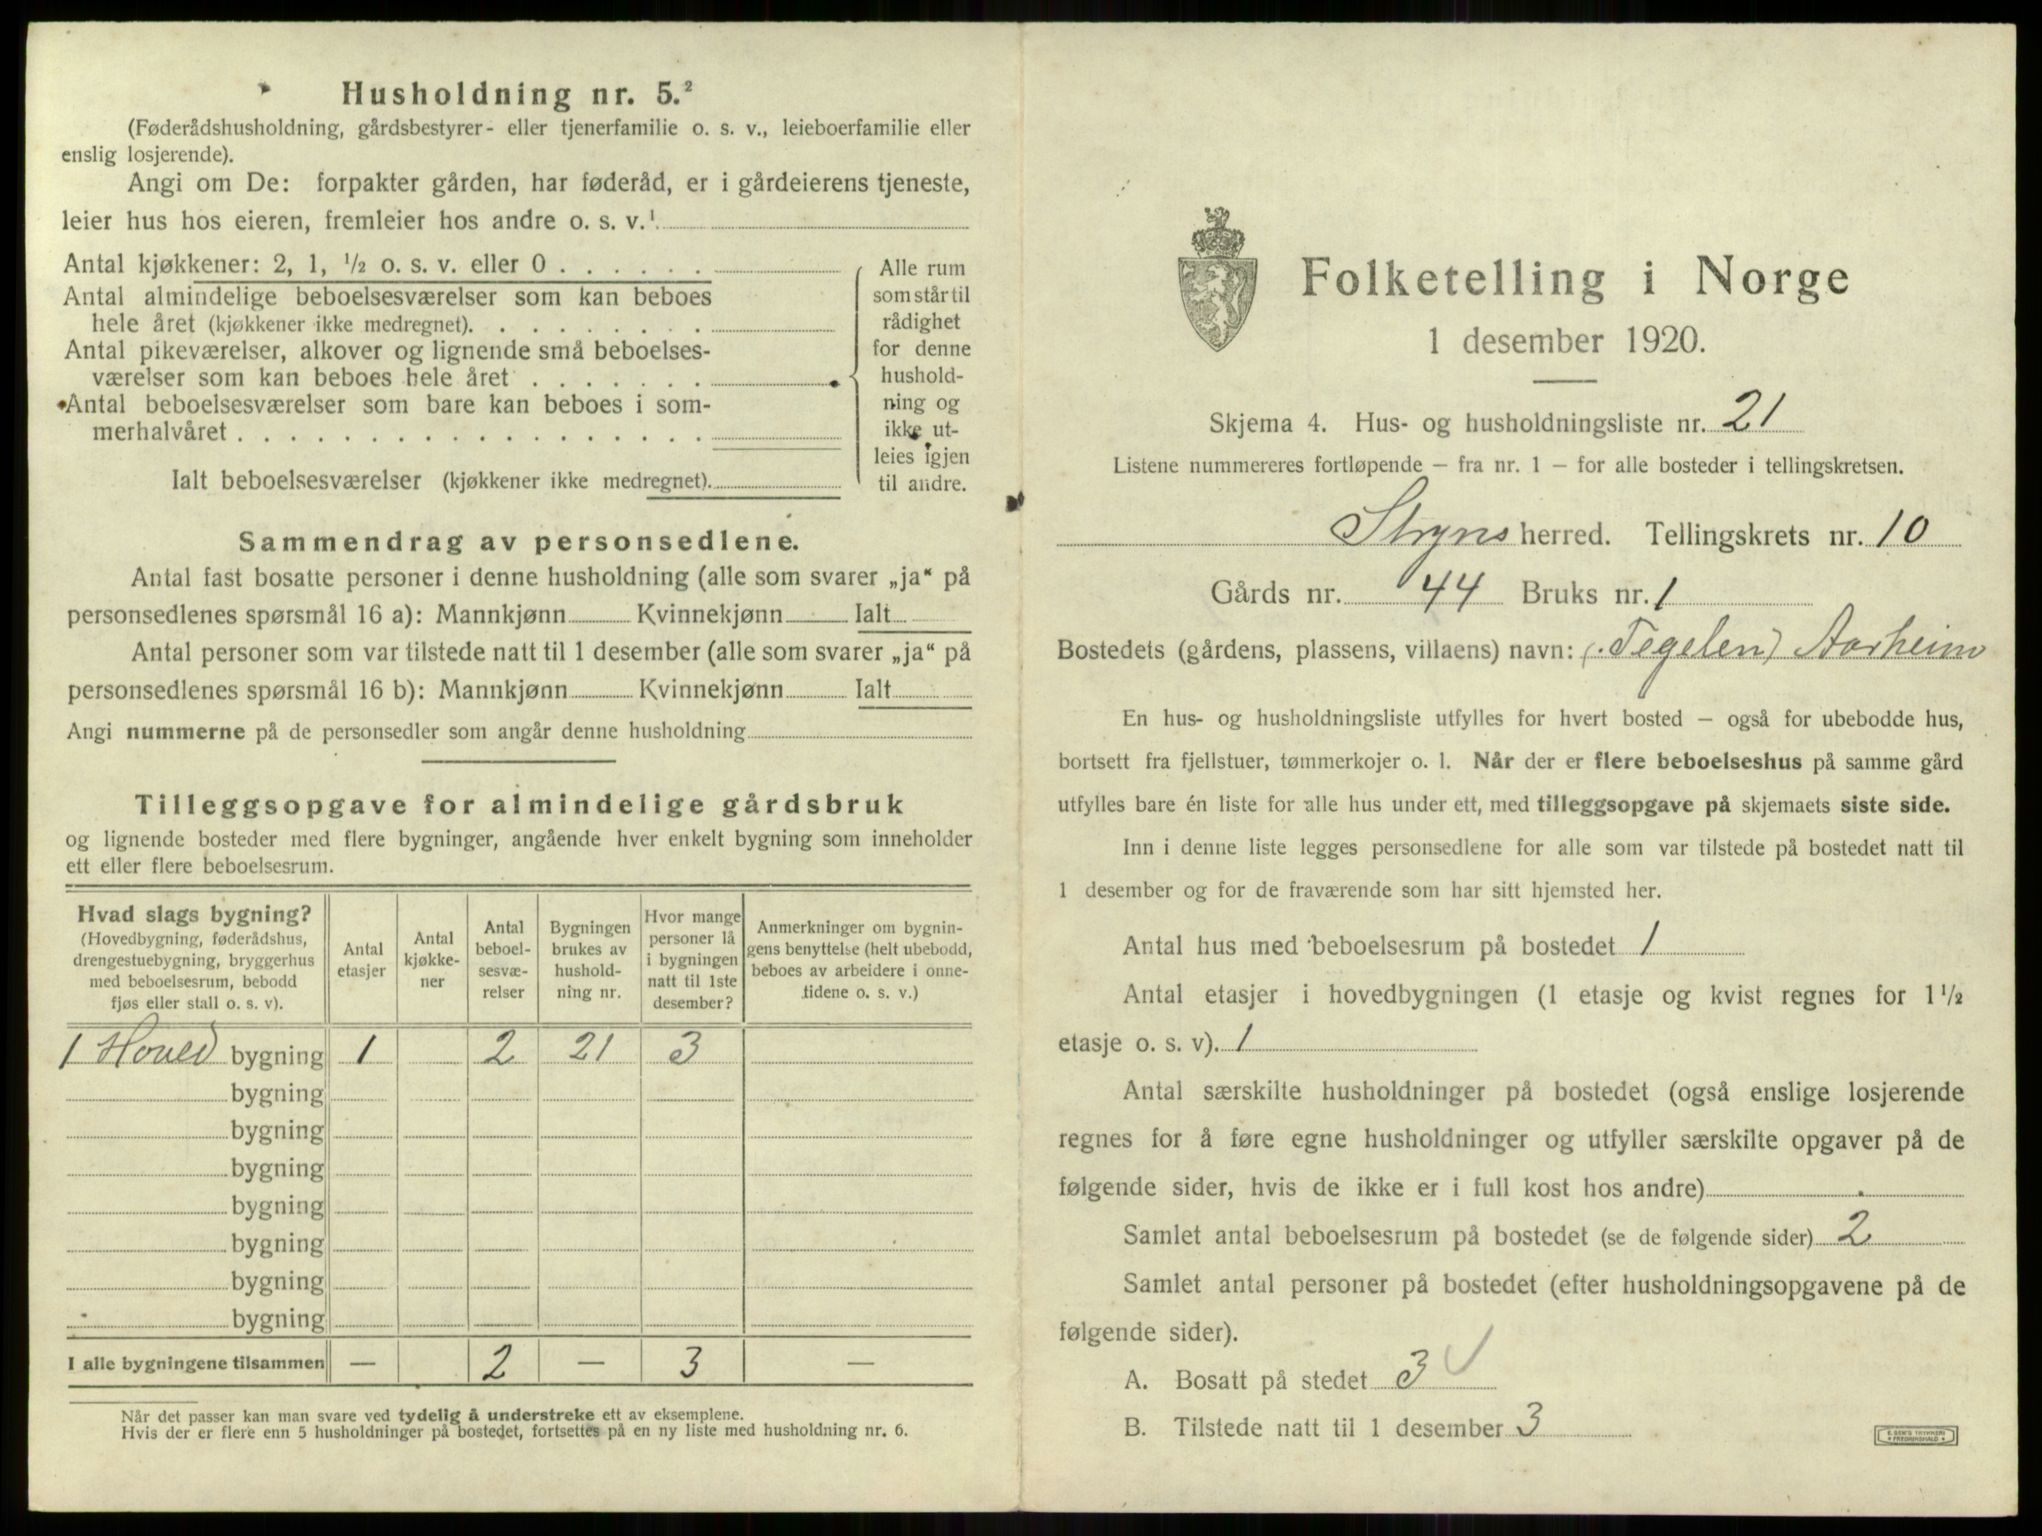 Husholdning nr. 5.²
(Føderådshusholdning, gårdsbestyrer- eller tjenerfamilie o. s. v., leieboerfamilie eller
enslig losjerende).
Angi om De: forpakter gården, har føderåd, er i gårdeierens tjeneste,
leier hus hos eieren, fremleier hos andre o. s. v.¹
Antal kjøkkener: 2, 1, ½ o. s. v. eller 0 . . . . . .
Antal almindelige beboelsesværelser som kan beboes
hele året (kjøkkener ikke medregnet). . . . . . . . .
Antal pikeværelser, alkover og lignende små beboelses-
værelser som kan beboes hele året . . . . . . .
Antal beboelsesværelser som bare kan beboes i som-
merhalvåret . . . . . . . . . . . . . . . . . .
Ialt beboelsesværelser (kjøkkener ikke medregnet).
Alle rum
som står til
rådighet
for denne
hushold-
ning og
ikke ut-
leies igjen
til andre.
Sammendrag av personsedlene.
Antal fast bosatte personer i denne husholdning (alle som svarer „ja“ på
personsedlenes spørsmål 16 a): Mannkjønn Kvinnekjønn Ialt
Antal personer som var tilstede natt til 1 desember (alle som svarer „ja“ på
personsedlenes spørsmål 16 b): Mannkjønn Kvinnekjønn Ialt
Angi nummerne på de personsedler som angår denne husholdning
Tilleggsopgave for almindelige gårdsbruk
og lignende bosteder med flere bygninger, angående hver enkelt bygning som inneholder
ett eller flere beboelsesrum.
Hvad slags bygning?
(Hovedbygning, føderådshus,
drengestuebygning, bryggerhus
med beboelsesrum, bebodd
fjøs eller stall o. s. v).
Antal
etasjer
Antal
kjøkke-
ner
Antal
beboel-
sesvæ-
relser
Bygningen
brukes av
hushold-
ning nr.
Hvor mange
personer lå
i bygningen
natt til 1ste
desember?
Anmerkninger om bygnin-
gens benyttelse (helt ubebodd,
beboes av arbeidere i onne-
tidene o. s. v.)
1 Hoved bygning 1 2 21 3
bygning
bygning
bygning
bygning
bygning
bygning
bygning
I alle bygningene tilsammen — 2 — 3 —
Når det passer kan man svare ved tydelig å understreke ett av eksemplene.
Hvis der er flere enn 5 husholdninger på bostedet, fortsettes på en ny liste med husholdning nr. 6.
Folketelling i Norge
1 desember 1920.
Skjema 4. Hus- og husholdningsliste nr. 21
Listene nummereres fortløpende – fra nr. 1 – for alle bosteder i tellingskretsen.
Stryns herred. Tellingskrets nr. 10
Gårds nr. 44 Bruks nr. 1
Bostedets (gårdens, plassens, villaens) navn: (Tegelen) Aarheim
En hus- og husholdningsliste utfylles for hvert bosted – også for ubebodde hus,
bortsett fra fjellstuer, tømmerkojer o. l. Når der er flere beboelseshus på samme gård
utfylles bare én liste for alle hus under ett, med tilleggsopgave på skjemaets siste side.
Inn i denne liste legges personsedlene for alle som var tilstede på bostedet natt til
1 desember og for de fraværende som har sitt hjemsted her.
Antal hus med beboelsesrum på bostedet 1
Antal etasjer i hovedbygningen (1 etasje og kvist regnes for 1½
etasje o. s. v). 1
Antal særskilte husholdninger på bostedet (også enslige losjerende
regnes for å føre egne husholdninger og utfyller særskilte opgaver på de
følgende sider, hvis de ikke er i full kost hos andre)
Samlet antal beboelsesrum på bostedet (se de følgende sider) 2
Samlet antal personer på bostedet (efter husholdningsopgavene på de
følgende sider).
A. Bosatt på stedet 3
B. Tilstede natt til 1 desember 3